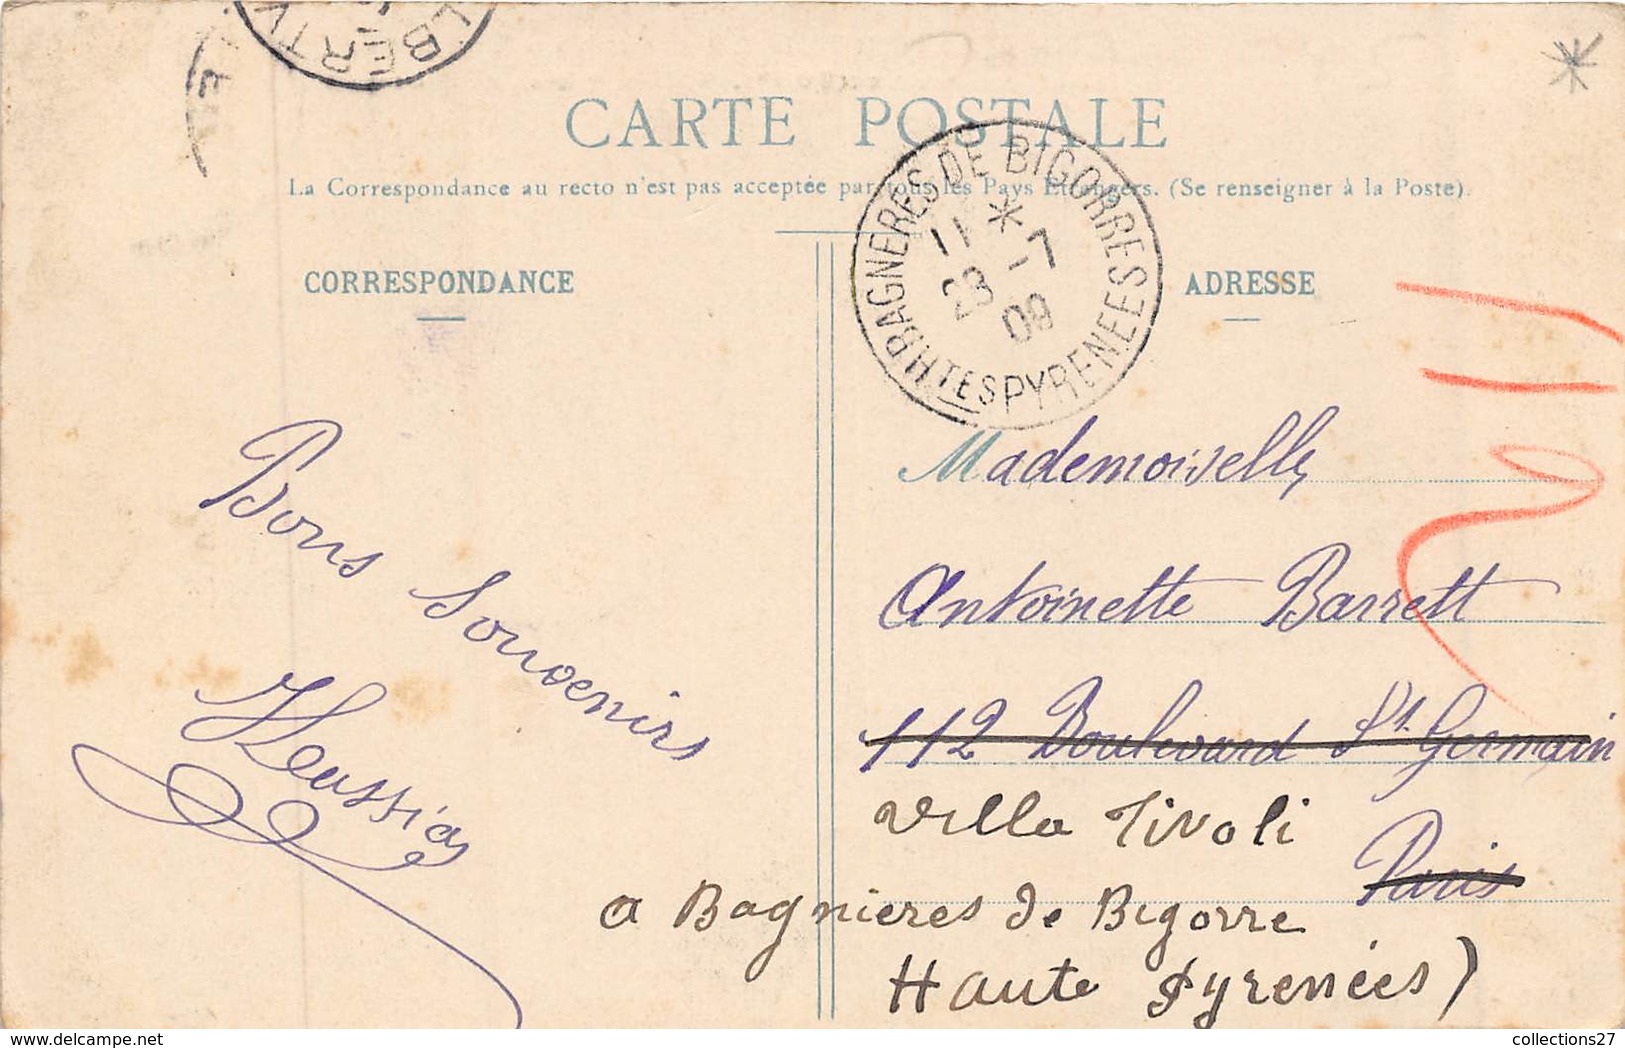 LBERTV
E
CARTE POSTALE
La Correspondance au recto n'est pas acceptée par tous les Pays Etrangers. (Se renseigner à la Poste).
BAGNERES DE BIGORRES
11 * -7
23
09
HTES PYRENEES
CORRESPONDANCE
ADRESSE
Bons Souvenirs
Mademoiselle
Antoinette Barrett
112 Boulevard St Germain
Paris
Villa Tivoli
a Bagnieres de Bigorre
Haute Pyrenées)
delcampe.net
collections27